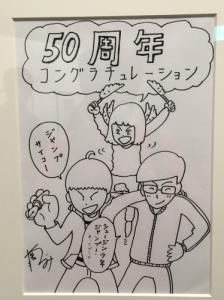 50周年
コングラチュレーション
ジャンプ
サイコー
ショージン少年
ジャンプー